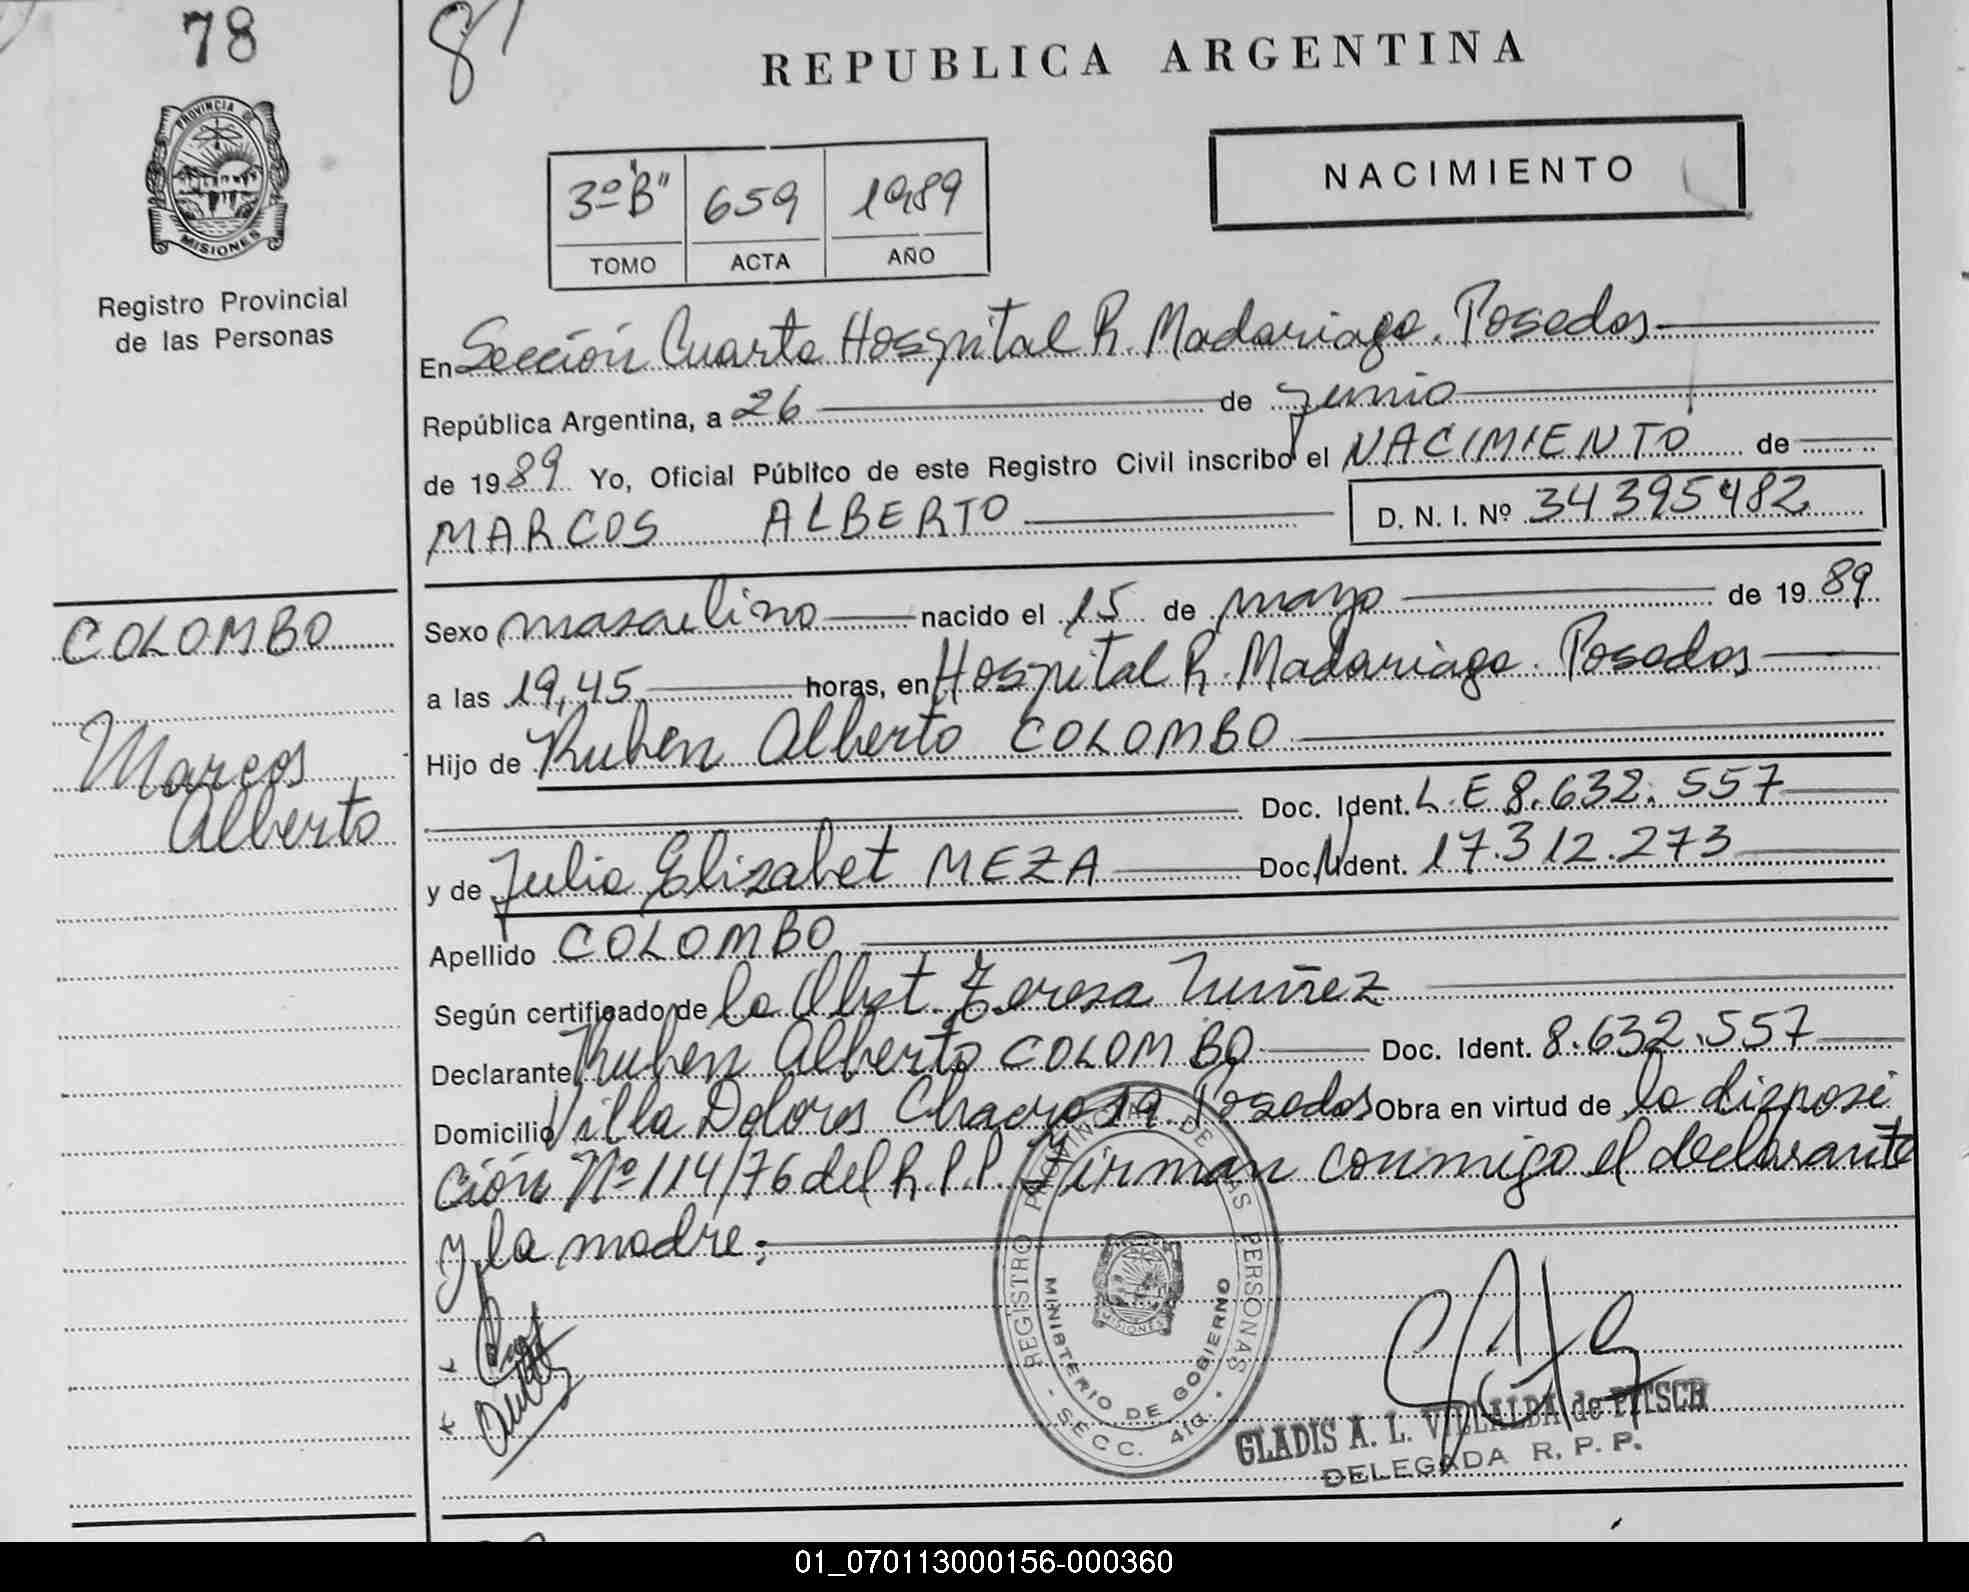 78
8
REPUBLICA ARGENTINA
PROVINCIA DE
MISIONES
NACIMIENTO
3º "B" 659 1989
TOMO ACTA AÑO
Registro Provincial
de las Personas
En Sección Cuarta Hospital R. Madariaga. Posadas
República Argentina, a 26 de junio
de 1989 Yo, Oficial Público de este Registro Civil inscribo el NACIMIENTO de
MARCOS ALBERTO D. N. I. Nº 34395482
COLOMBO
Marcos
Alberto
Sexo masculino nacido el 15 de mayo de 1989
a las 19,45 horas, en Hospital R. Madariaga. Posadas
Hijo de Ruben Alberto COLOMBO
Doc. Ident. L.E 8.632.557
y de Julia Elizabet MEZA Doc. Ident. 17.312.273
Apellido COLOMBO
Según certificado de la Obst. Teresa Nuñez
Declarante Ruben Alberto COLOMBO Doc. Ident. 8.632.557
Domicilio Villa Dolores Chacra 19 Posadas Obra en virtud de la disposi
ción Nº 114/76 del R.P.P. Firman conmigo el declarante
y la madre:
REGISTRO PROVINCIAL DE LAS PERSONAS
MINISTERIO DE GOBIERNO
MISIONES
- SECC. 4ta. -
GLADIS A. L. VILLALBA de PITSCH
DELEGADA R. P. P.
01_070113000156-000360